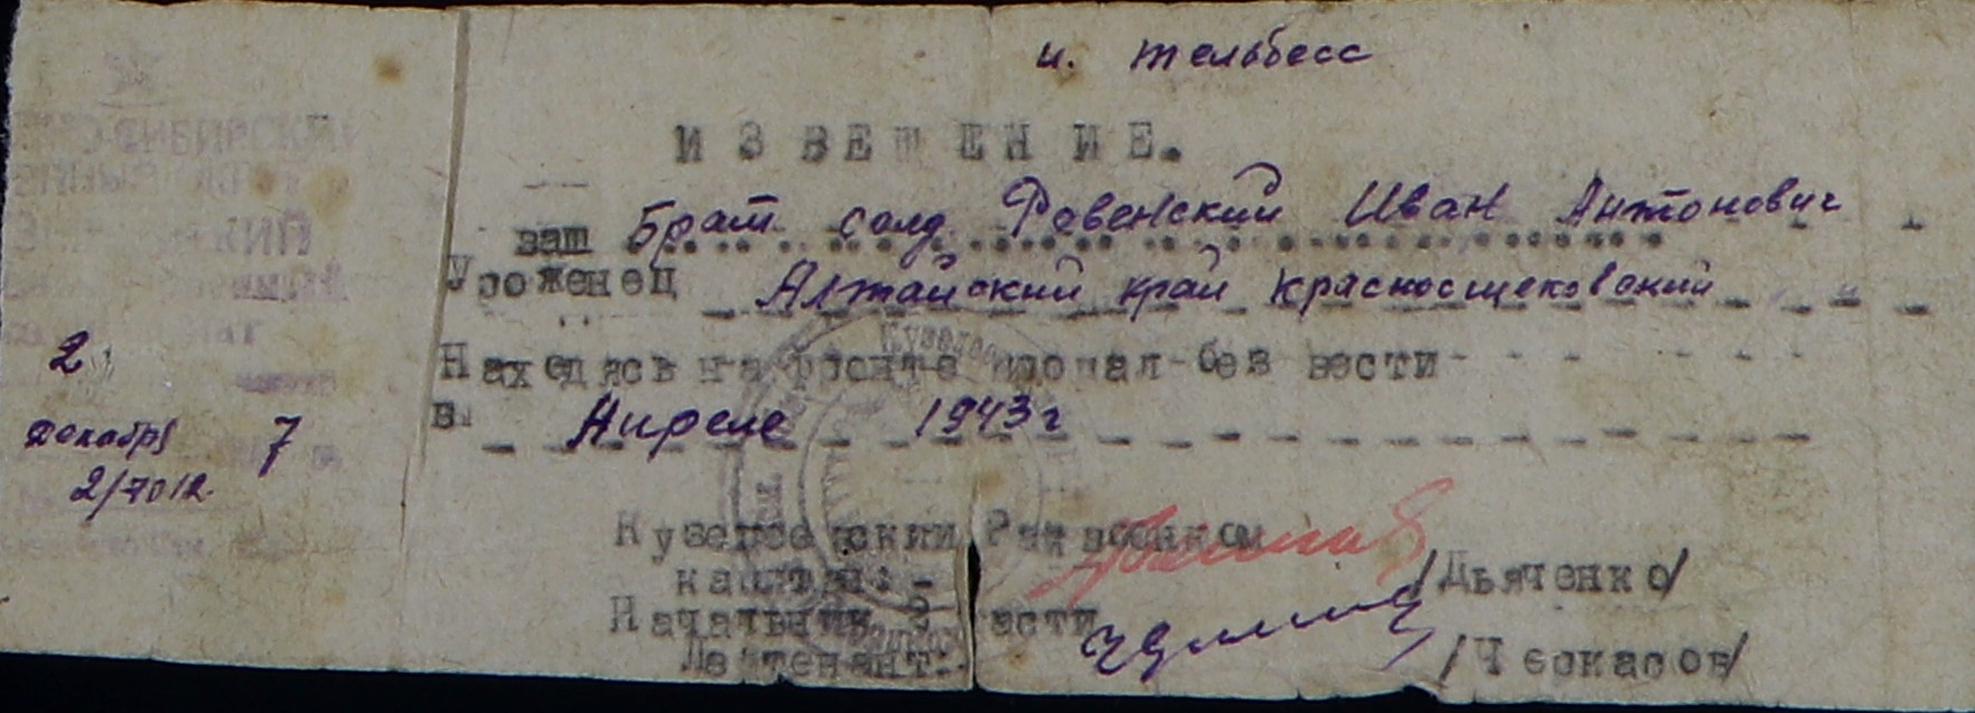 п. Тельбесс
ИЗВЕЩЕНИЕ.
ваш Брат солд. Ровенский Иван Антонович
Уроженец Алтайский край Красносщековский
Находясь на фронте пропал без вести
в Апреле 1943 г
2
декабря 7
2/7012.
Кузедеевский Райвоенком
капитан: - /Дьяченко/
Начальник 2 части
Лейтенант: /Черкасов/